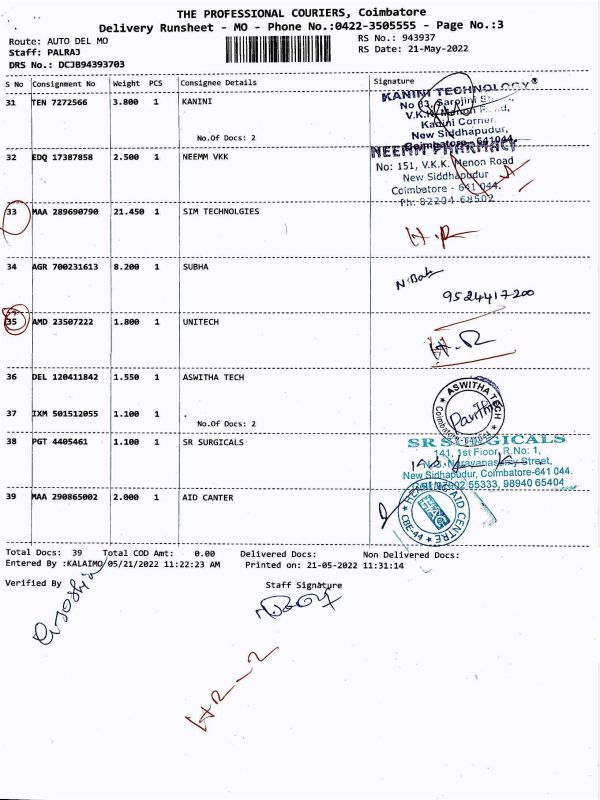 THE PROFESSIONAL COURIERS, Coimbatore
Delivery Runsheet - MO - Phone No.:0422-3505555 - Page No.:3
Route: AUTO DEL MO
RS No.: 943937
Staff: PALRAJ
RS Date: 21-May-2022
DRS No.: DCJB94393703
S No Consignment No Weight PCS Consignee Details Signature
31 TEN 7272566 3.800 1 KANINI
KANINI TECHNOLOGY
No 33, Sarojini
V.K.K. Menon Road,
Kanini Corner
New Siddhapudur,
No.Of Docs: 2
Coimbatore - 641044.
32 EDQ 17387858 2.500 1 NEEMM VKK
NEEMM PHARMACY
No: 151, V.K.K. Menon Road
New Siddhapudur
Coimbatore - 641 044.
Ph: 82204 68502
33 MAA 289690790 21.450 1 SIM TECHNOLGIES
H.R
34 AGR 700231613 8.200 1 SUBHA
9524417200
35 AMD 23507222 1.800 1 UNITECH
H.R
36 DEL 120411842 1.550 1 ASWITHA TECH
ASWITHA TECH
Coimbatore
37 IXM 501512055 1.100 1 .
No.Of Docs: 2
38 PGT 4405461 1.100 1 SR SURGICALS
SR SURGICALS
141, 1st Floor, R.No: 1,
N.S. Narayanasamy Street,
New Sidhapudur, Coimbatore-641 044.
55333, 98940 65404
39 MAA 290865002 2.000 1 AID CANTER
HEARING AID CENTRE
CBE-44
Total Docs: 39 Total COD Amt: 0.00 Delivered Docs: Non Delivered Docs:
Entered By :KALAIMO/05/21/2022 11:22:23 AM Printed on: 21-05-2022 11:31:14
Verified By
Staff Signature
HR-2